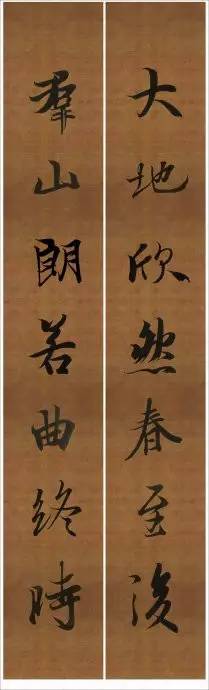 大地欣然春至後
羣山朗若曲終時